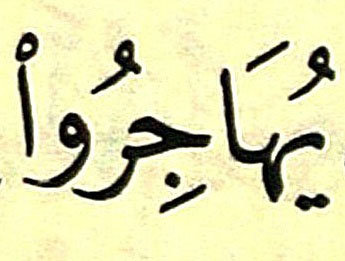 يُهَاجِرُوا۟